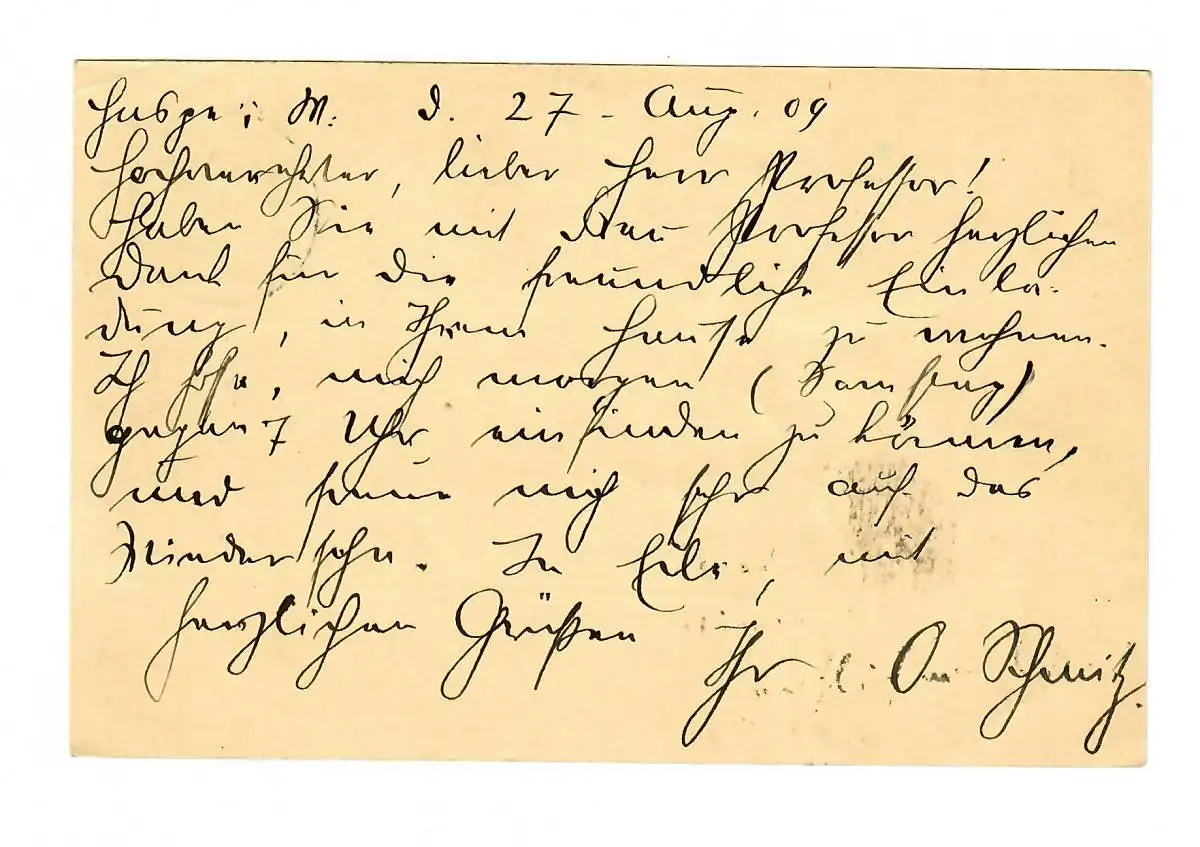 Haspe i. W. d. 27. Aug. 09
Hochverehrter, lieber Herr Professor!
Haben Sie mit Frau Professor herzlichen
Dank für die freundliche Einla-
dung, in Ihrem Hause zu wohnen.
Ich hoffe, mich morgen (Samstag)
gegen 7 Uhr einfinden zu können,
und freue mich sehr auf das
Wiedersehn. In Eile, mit
herzlichen Grüßen
Ihr O. Schmitz.